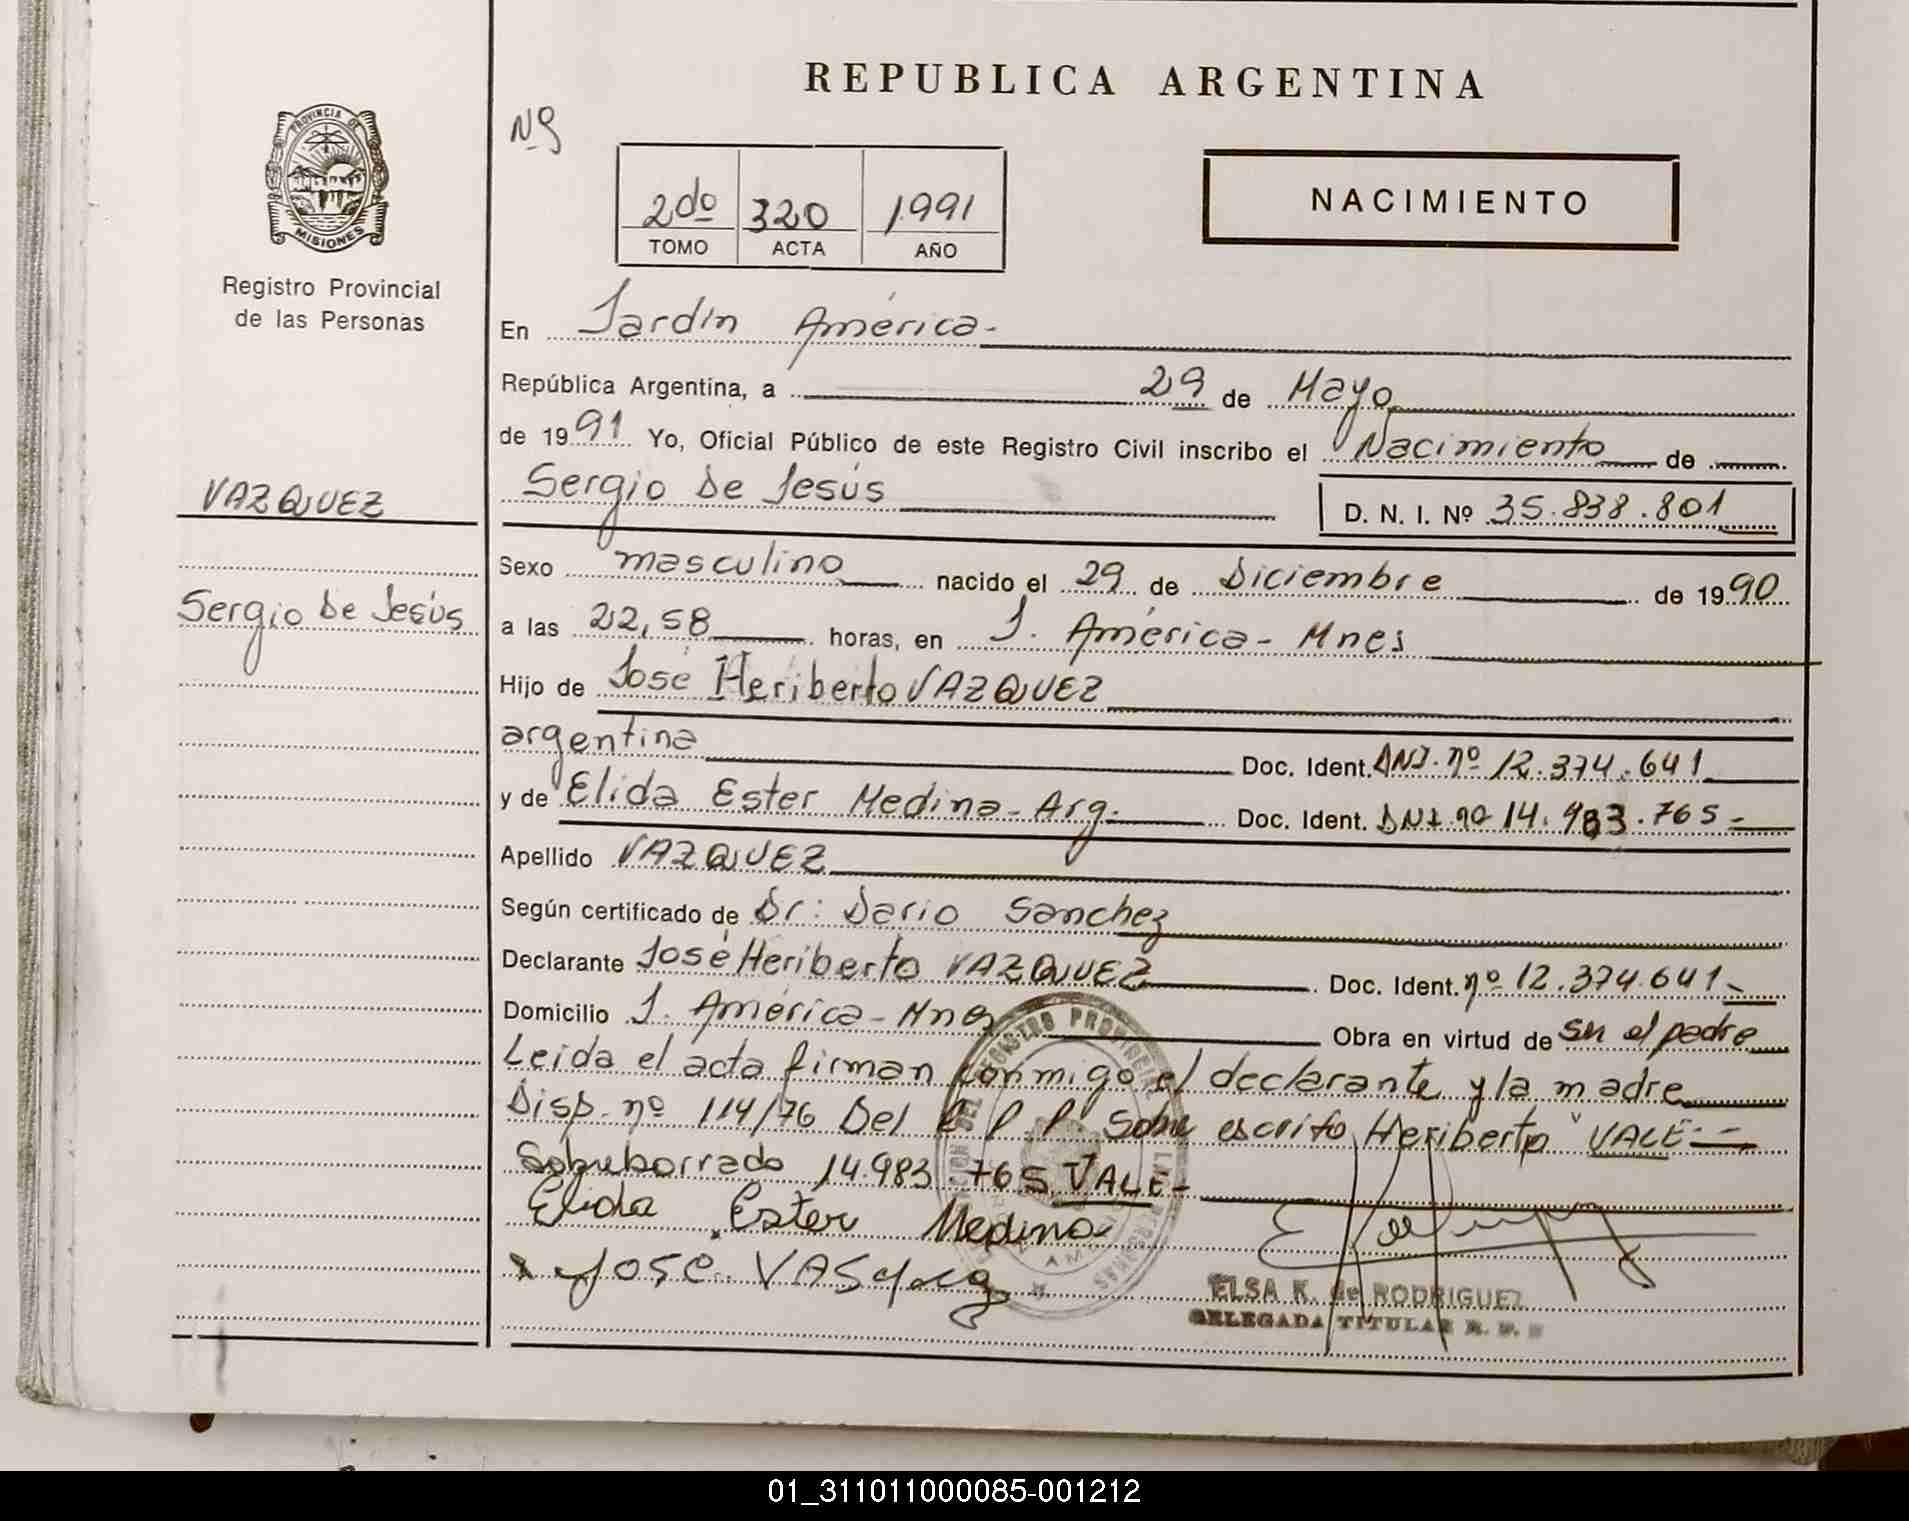 REPUBLICA ARGENTINA
Nº
PROVINCIA DE
MISIONES
Registro Provincial
de las Personas
2do 320 1991
TOMO ACTA AÑO
NACIMIENTO
En Jardín América-
República Argentina, a 29 de Mayo
de 1991 Yo, Oficial Público de este Registro Civil inscribo el Nacimiento de
VAZQUEZ
Sergio De Jesús
D. N. I. Nº 35.838.801
Sexo masculino nacido el 29 de Diciembre de 1990
Sergio De Jesús
a las 22,58 horas, en J. América- Mnes
Hijo de José Heriberto VAZQUEZ
argentina Doc. Ident. DNI. nº 12.374.641
y de Elida Ester Medina- Arg. Doc. Ident. DNI. nº 14.983.765-
Apellido VAZQUEZ
Según certificado de Dr: Dario Sanchez
Declarante José Heriberto VAZQUEZ Doc. Ident. nº 12.374.641-
Domicilio J. América- Mnes Obra en virtud de Sn el padre
Leida el acta firman conmigo el declarante y la madre
Disp. nº 114/76 Del R P P Sobre escrito Heriberto "VALE--
Sobreborrado 14.983.765 VALE-
Elida Ester Medina
x José VASquez
ELSA K. de RODRIGUEZ
DELEGADA TITULAR R. P.
01_311011000085-001212